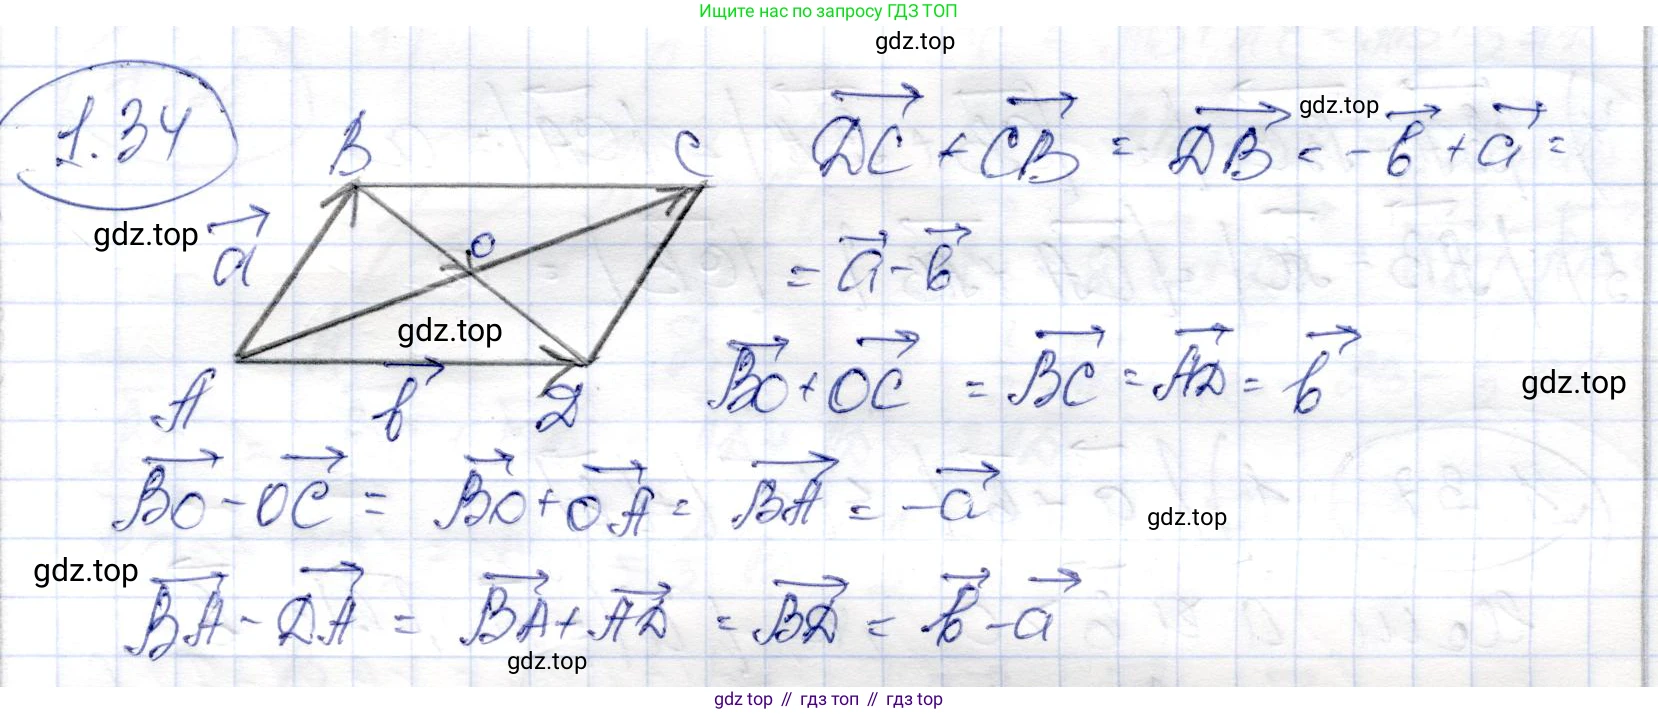 Ищите нас по запросу ГДЗ ТОП
gdz.top
1.34
B
C
DC + CB = DB = -b + a =
gdz.top
gdz.top
a
O
= a - b
gdz.top
BO + OC = BC = AD = b
gdz.top
A
b
D
BO - OC = BO + OA = BA = -a
gdz.top
gdz.top
BA - DA = BA + AD = BD = b - a
gdz.top
gdz top // гдз топ // gdz top